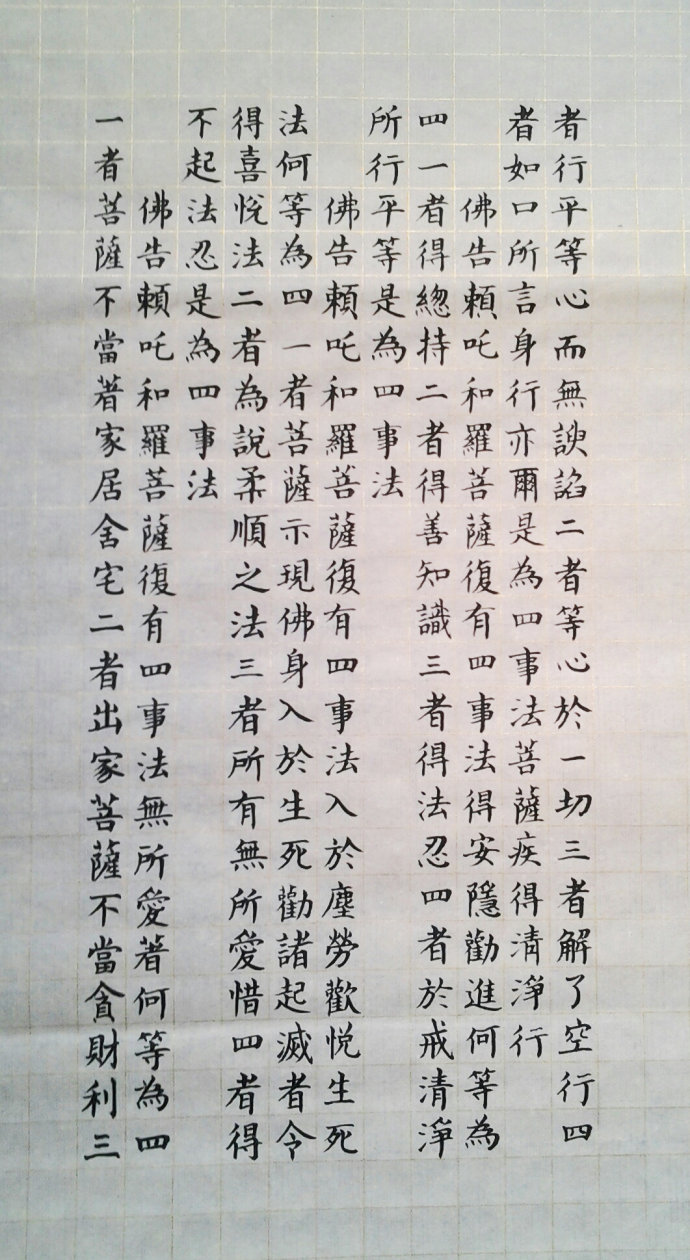 者行平等心而無諛諂二者等心於一切三者解了空行四
者如口所言身行亦爾是為四事法菩薩疾得清淨行
佛告賴吒和羅菩薩復有四事法得安隱勸進何等為
四一者得總持二者得善知識三者得法忍四者於戒清淨
所行平等是為四事法
佛告賴吒和羅菩薩復有四事法入於塵勞歡悅生死
法何等為四一者菩薩示現佛身入於生死勸諸起滅者令
得喜悅法二者為說柔順之法三者所有無所愛惜四者得
不起法忍是為四事法
佛告賴吒和羅菩薩復有四事法無所愛著何等為四
一者菩薩不當著家居舍宅二者出家菩薩不當貪財利三